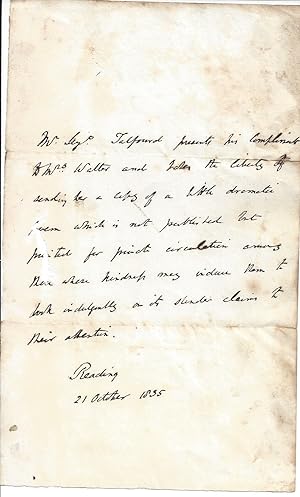 Mr. Serjt. Talfourd presents his compliments
to Mrs Walter and takes the liberty of
sending her a copy of a little dramatic
poem which is not published but
printed for private circulation among
those whose kindness may induce them to
look indulgently on its slender claims to
their attention.
Reading
21 October 1835